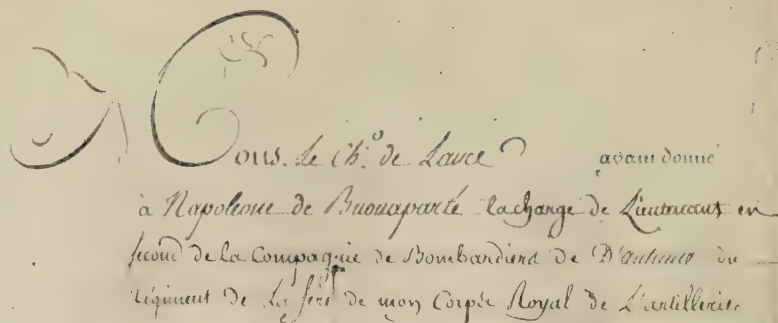 Mons. le Ch.er de Lance ayant donné
à Napoleone de Buonaparte la charge de Lieutenant en
second de la Compagnie de Bombardiers de D'autume du
régiment de La fere de mon Corps Royal de L'artillerie.